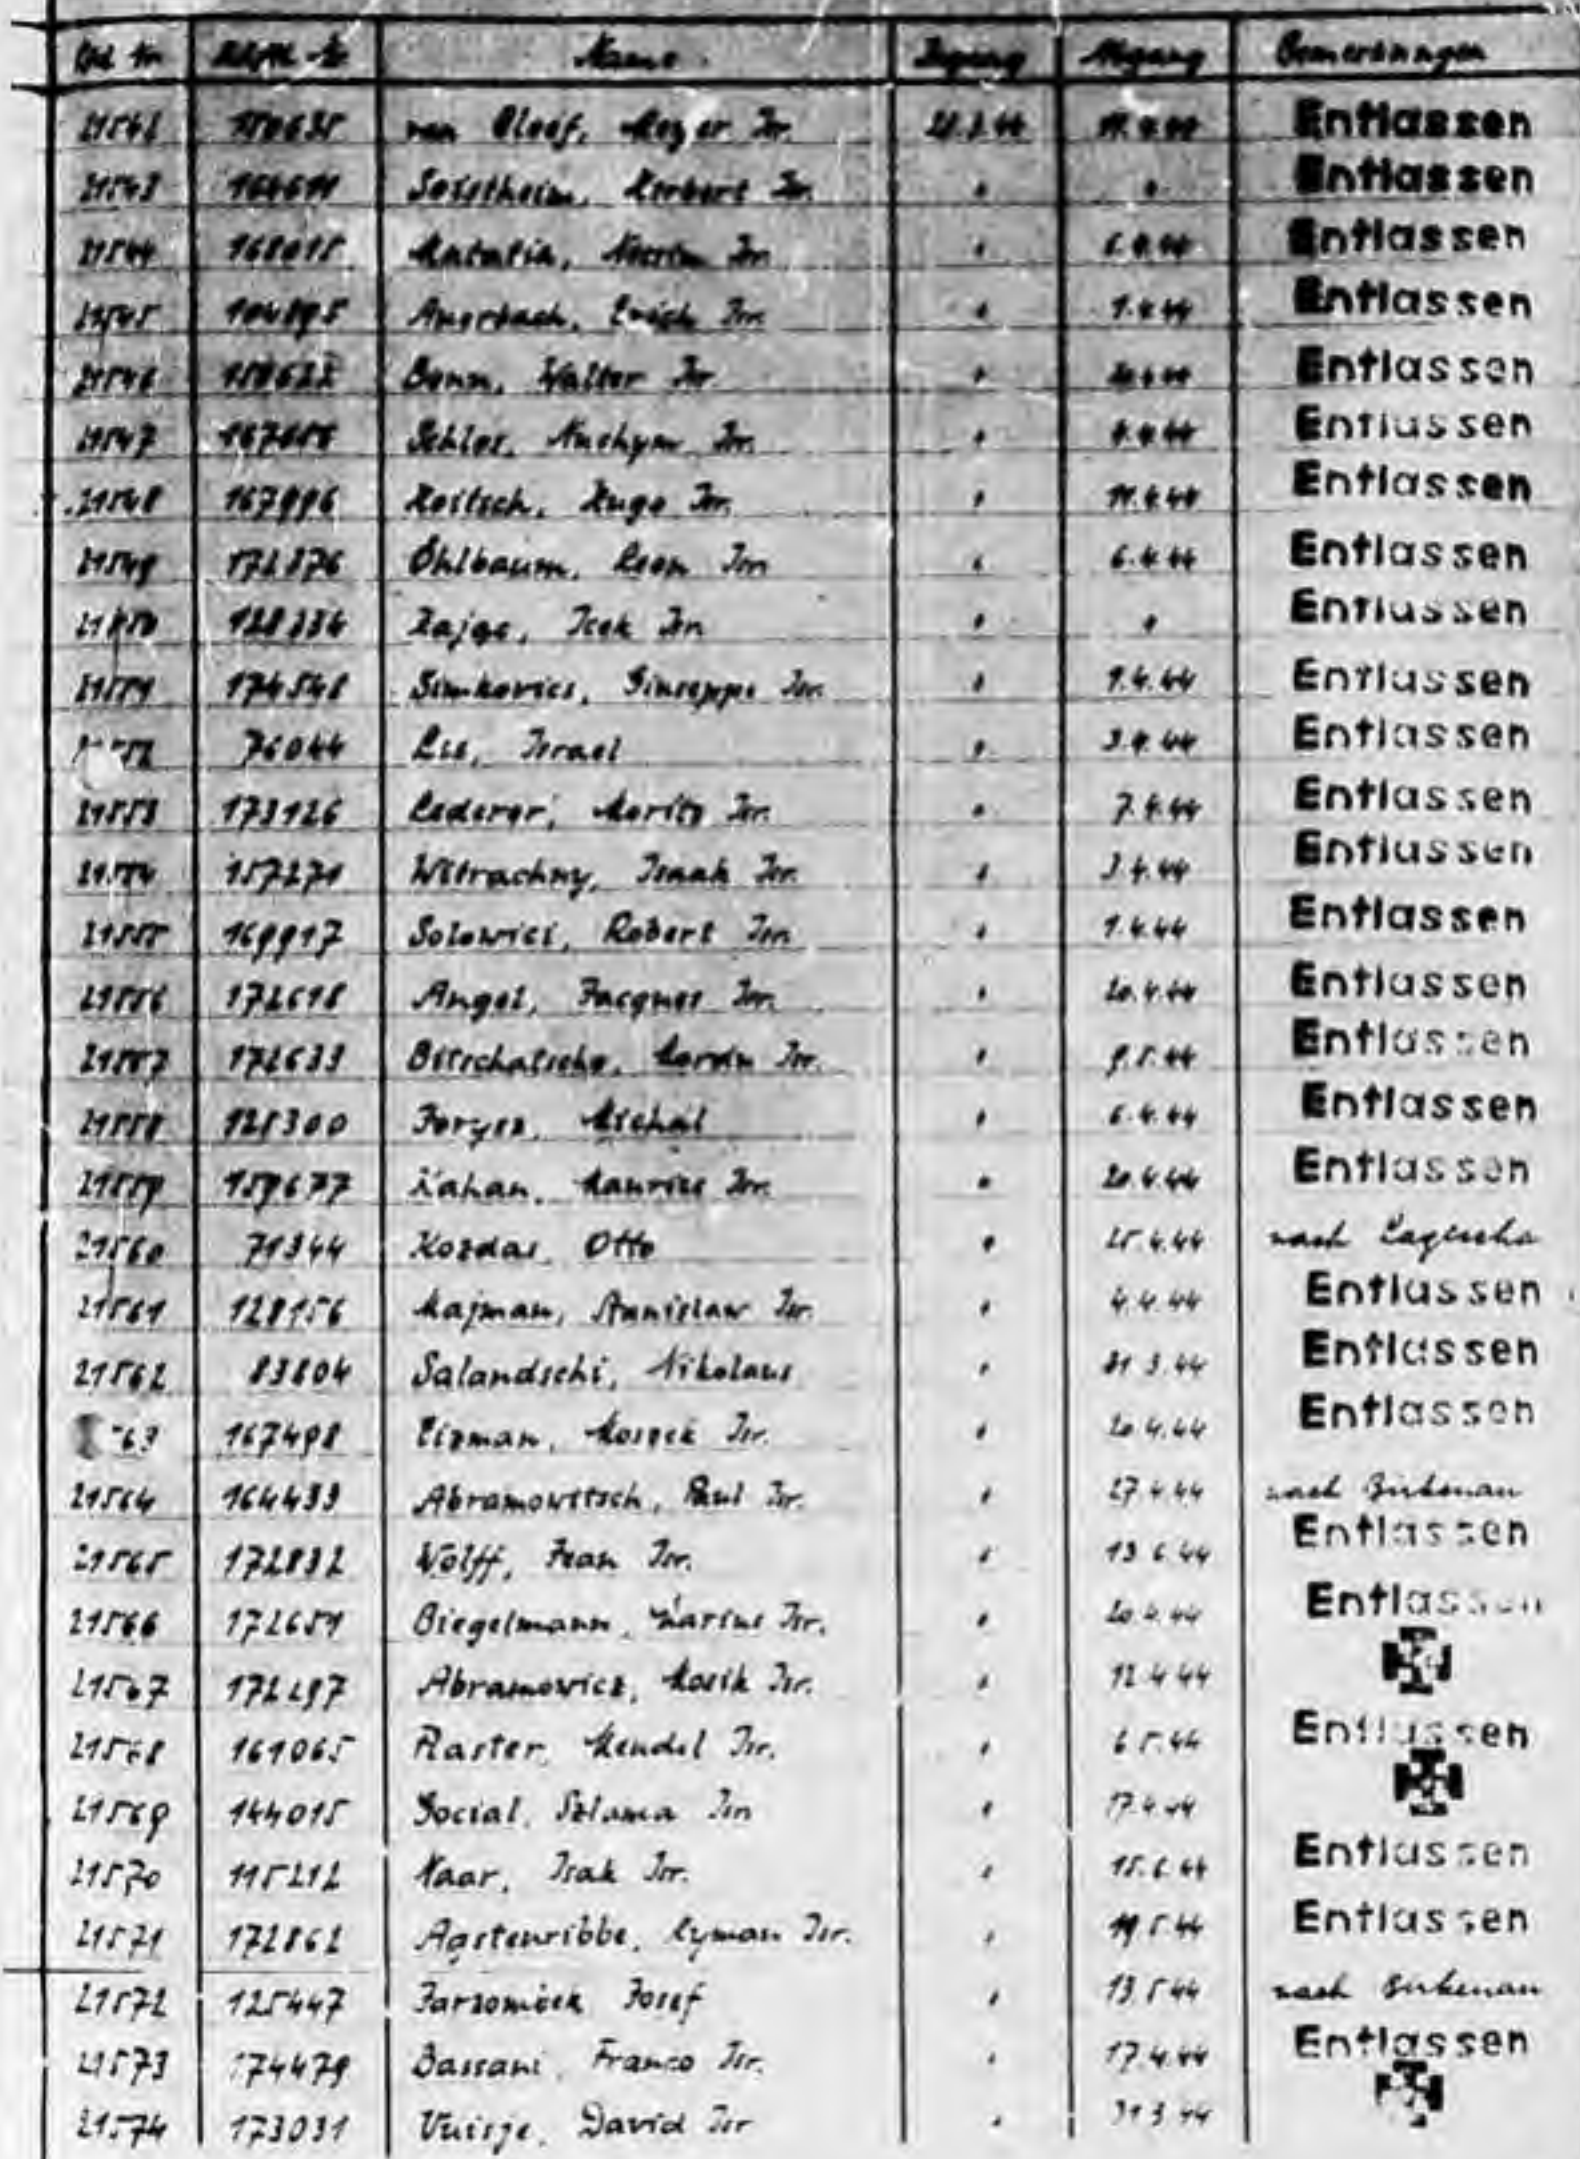 Lfd. Nr. Häftl. Nr. Name Zugang Abgang Bemerkungen
21542 van Cleef, Meyer Isr. Entlassen
21543 Herbert Isr. " " Entlassen
21544 Matatia, Nissim Isr. " Entlassen
21545 Auerbach, Erich Isr. " 1.4.44 Entlassen
21546 Bonn, Walter Isr. " Entlassen
21547 Schlos, Nuchym Isr. " Entlassen
21548 167996 Hugo Isr. " 11.4.44 Entlassen
21549 172876 Öhlbaum, Leon Isr. " 6.4.44 Entlassen
21550 128336 Zajac, Icek Isr. " " Entlassen
21551 174548 Simkovics, Giuseppe Isr. " 1.4.44 Entlassen
76044 Israel " 3.4.44 Entlassen
21553 173126 Lederer, Moritz Isr. " 7.4.44 Entlassen
21554 157271 Isaak Isr. " 3.4.44 Entlassen
21555 169917 Solowici, Robert Isr. " 1.4.44 Entlassen
21556 172618 Angel, Jacques Isr. " 20.4.44 Entlassen
21557 172633 " 9.5.44 Entlassen
21558 128300 " 6.4.44 Entlassen
21559 159677 Kahan, Maurice Isr. " 20.4.44 Entlassen
21560 71344 Kozdas, Otto " 25.4.44 nach Lagischa
21561 128156 Majman, Stanislaw Isr. " 4.4.44 Entlassen
21562 83804 Salandschi, Nikolaus " 31.3.44 Entlassen
63 167498 Cizman, Moszek Isr. " 20.4.44 Entlassen
21564 164433 Abramowitsch, Paul Isr. " 27.4.44 nach Birkenau
21565 172832 Wolff, Jean Isr. " 13.6.44 Entlassen
21566 172651 Biegelmann, Marius Isr. " 20.4.44 Entlassen
21567 172297 Abramowicz, Mosik Isr. " 12.4.44
21568 161065 Raster, Mendel Isr. " 6.5.44 Entlassen
21569 144015 Social, Szlama Isr. " 17.4.44
21570 115212 Naar, Isak Isr. " 15.6.44 Entlassen
21571 172862 Agstenribbe, Lyman Isr. " 19.5.44 Entlassen
21572 125447 Josef " 13.5.44 nach Birkenau
21573 174479 Bassani, Franco Isr. " 17.4.44 Entlassen
21574 173031 Vuisje, David Isr " 31.3.44